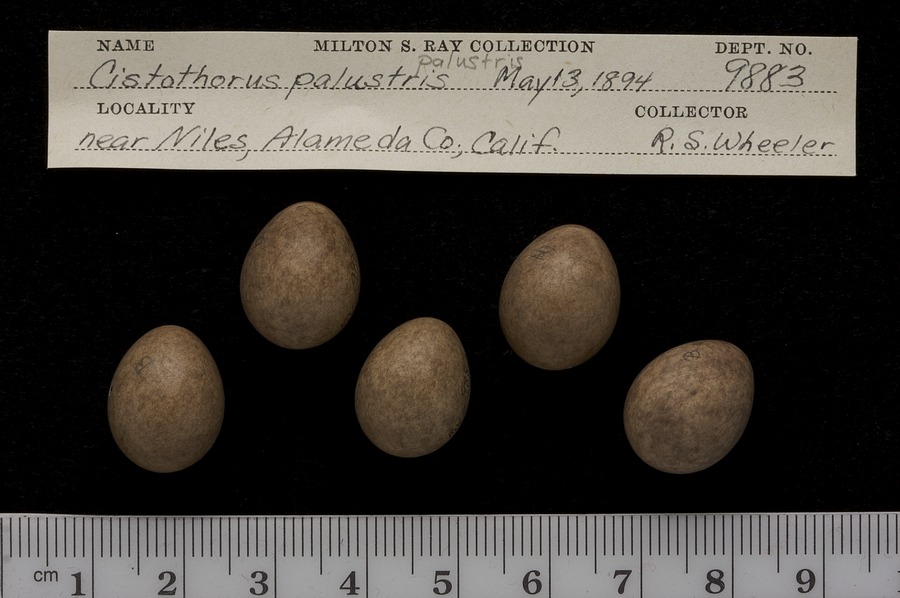 NAME MILTON S. RAY COLLECTION DEPT. NO.
palustris
Cistothorus palustris May 13, 1894 9883
LOCALITY COLLECTOR
near Niles, Alameda Co., Calif. R. S. Wheeler
cm 1 2 3 4 5 6 7 8 9